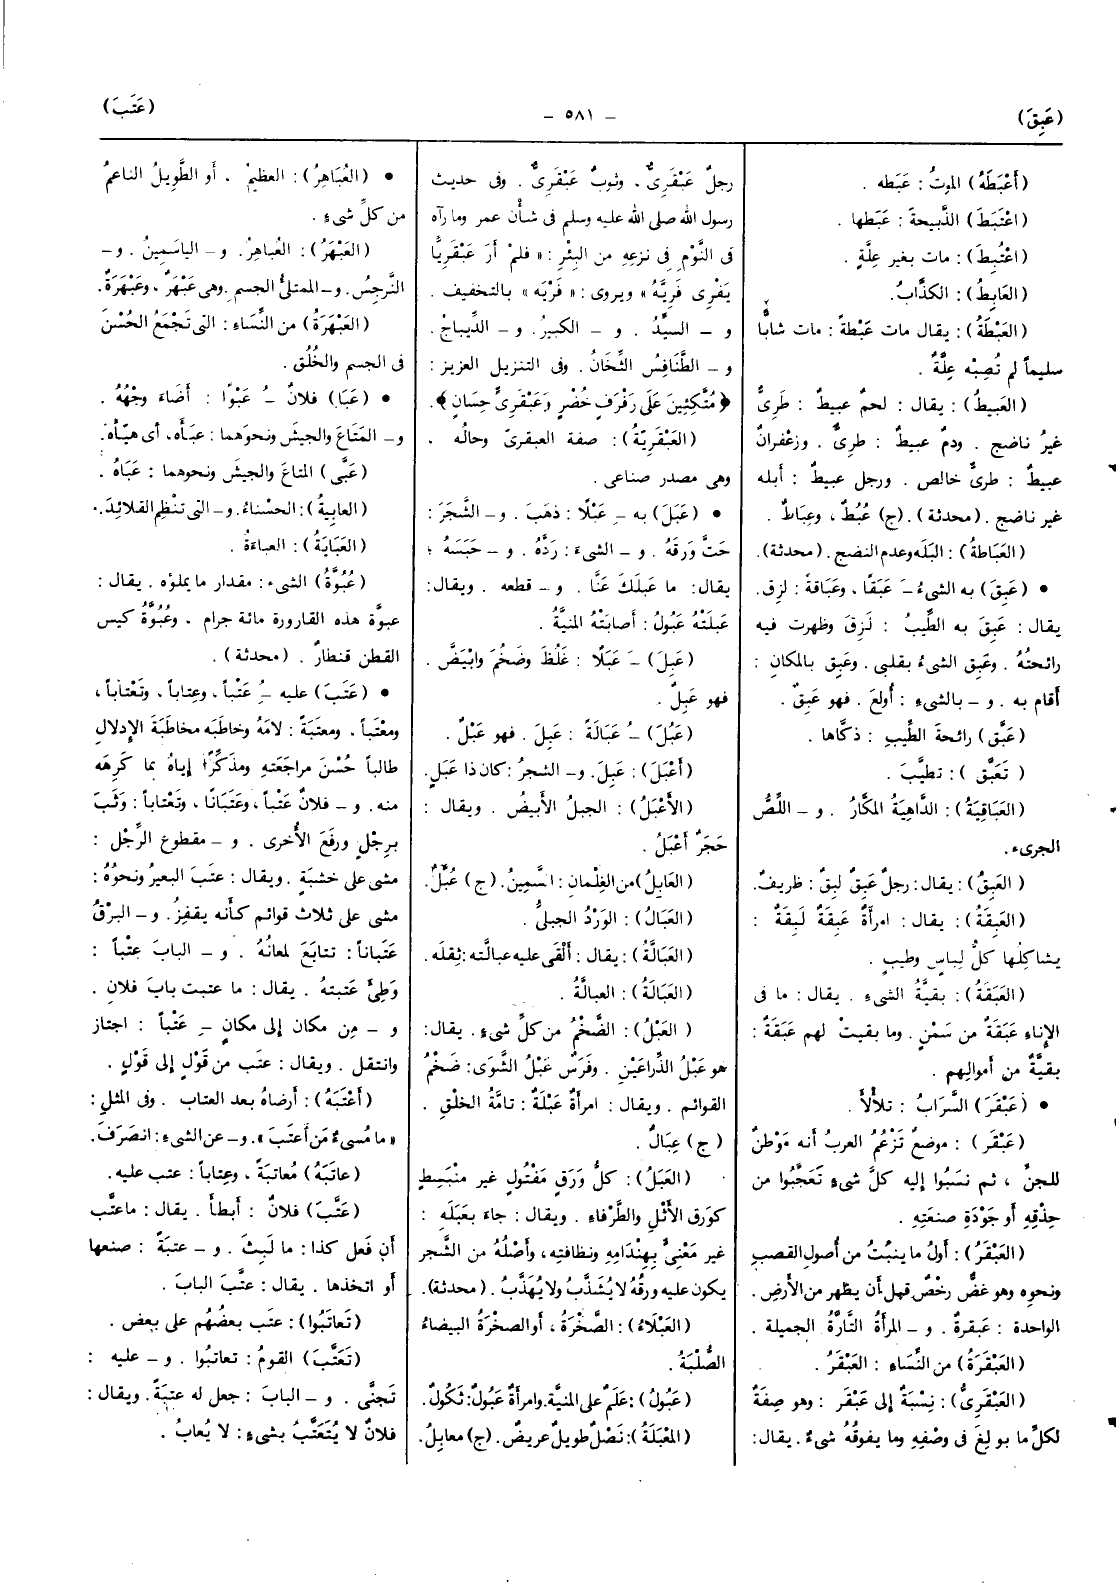 (عَبِقَ)
— ٥٨١ —
(عَتَبَ)
(أعْبَطَهُ) الموتُ : عَبَطه .
(اعْتَبَطَ) الذَّبيحةَ : عَبَطها .
(اعْتُبِطَ) : مات بغير عِلَّةٍ .
(العَابِطُ) : الكذَّابُ.
(العَبْطَةُ) : يقال مات عَبْطةً : مات شابًّا
سليماً لم تُصِبْه عِلَّةٌ .
(العَبيطُ) : يقال : لحمٌ عبيطٌ : طَرِىٌّ
غيرُ ناضج . ودمٌ عبيطٌ : طرِىٌّ . وزعْفرانٌ
عبيطٌ : طرىٌّ خالص . ورجل عبيطٌ : أبله
غير ناضج . (محدثة) . (ج) عُبُطٌ ، وعِبَاطٌ .
(العَبَاطَةُ) : البَلَه وعدم النضج . (محدثة).
• (عَبِقَ) به الشىءُ ـَ عَبَقًا ، وعَبَاقةً : لزِق.
يقال : عَبِقَ به الطِّيبُ : لَزِقَ وظهرت فيه
رائحتُهُ . وعَبِق الشىءُ بقلبى . وعَبِق بالمكانِ :
أقام به . و ـ بالشىءِ : أُولعَ . فهو عَبِقٌ .
(عَبَّق) رائحةَ الطِّيبِ : ذكَّاها .
( تَعَبَّق ) : تطيَّبَ .
(العَبَاقِيَةُ) : الدَّاهيَةُ المكَّارُ . و ـ اللِّصُّ
الجرىء .
(العَبِقُ) : يقال : رجلٌ عَبِقٌ لبِقٌ : ظريفٌ.
(العَبِقَةُ) : يقال : امرأةٌ عَبِقَةٌ لَبِقةٌ :
يشاكِلُها كلُّ لِباسٍ وطيبٍ .
(العَبَقَةُ) : بقيَّةُ الشىءِ . يقال : ما فى
الإناءِ عَبَقَةٌ من سَمْنٍ . وما بقيتْ لهم عَبَقَةٌ :
بقيَّةٌ من أموالِهم .
• (عَبْقَرَ) السَّرَابُ : تلألأَ .
(عَبْقَر) : موضعٌ تَزْعُمُ العربُ أنه مَوْطنٌ
للجنِّ ، ثم نسَبُوا إليه كلَّ شىءٍ تَعَجَّبُوا من
حِذقِهِ أو جَوْدَةِ صنعَتِهِ .
(العَبْقَرُ) : أولُ ما ينبُتُ من أُصولِ القصبِ
ونحوِه وهو غضٌّ رخْصٌ قبل أن يظهر من الأَرضِ .
الواحدة : عَبقرةٌ . و ـ المرأةُ التَّارَّةُ الجميلة .
(العَبْقَرَةُ) من النِّسَاءِ : العَبْقَرُ .
(العَبْقَرِىُّ) : نِسْبَةٌ إلى عَبْقَر : وهو صِفَةٌ
لكلِّ ما بولِغَ فى وصْفِهِ وما يفوقُهُ شىءٌ . يقال:
رجلٌ عَبْقَرىٌّ ، وثوبٌ عَبْقَرِىٌّ . وفى حديث
رسول الله صلى الله عليه وسلم فى شأن عمر وما رآه
فى النَّوْمِ فى نزعِهِ من البِئْرِ : « فلمْ أرَ عَبْقَرِيًّا
يَفْرِى فَرِيَّهُ » ويروى : « فَرْيَه » بالتخفيف .
و ـ السيِّدُ . و ـ الكبيرُ . و ـ الدِّيباجُ .
و ـ الطَّنَافِسُ الثِّخَانُ . وفى التنزيل العزيز :
﴿ مُتَّكِئِينَ عَلَى رَفْرَفٍ خُضْرٍ وَعَبْقَرِىٍّ حِسَانٍ ﴾.
(العَبْقَرِيّةُ) : صفة العبقرىّ وحالُه .
وهى مصدر صناعى .
• (عَبَلَ) به ـِ عَبْلًا : ذهَبَ . و ـ الشَّجَرَ :
حَتَّ وَرَقَهُ . و ـ الشىءَ : رَدَّهُ . و ـ حَبَسَهُ ؛
يقال : ما عَبلَكَ عَنَّا . و ـ قطعه . ويقال :
عَبلَتْهُ عَبُولُ : أصابَتْهُ المنيَّةُ .
(عَبِلَ) ـَ عَبَلًا : غَلُظَ وضَخُمَ وابْيَضَّ .
فهو عَبِلٌ .
(عَبُلَ) ـُ عَبَالَةً : عَبِلَ . فهو عَبْلٌ .
(أعْبَلَ) : عَبِلَ . و ـ الشجرُ : كان ذا عَبَلٍ.
(الأَعْبَلُ) : الجبلُ الأبيضُ . ويقال :
حَجَرٌ أَعْبَلُ .
(العَابِلُ) من الغِلْمانِ : السَّمِينُ . (ج) عُبَّلٌ.
(العَبَالُ) : الوَرْدُ الجبلىُّ .
(العَبَالَّةُ) : يقال : ألْقَى عليه عبالَّته : ثِقلَه .
(العَبَالَةُ) : العبالَّةُ .
( العَبْلُ) : الضَّخْمُ من كلِّ شىءٍ . يقال :
هو عَبْلُ الذِّراعَيْنِ . وفَرَسٌ عَبْلُ الشَّوَى : ضَخْمُ
القوائم . ويقال : امرأةٌ عَبْلةٌ : تامَّةُ الخلْقِ .
(ج) عِبَالٌ .
(العَبَلُ) : كلُّ وَرَقٍ مَفْتُولٍ غير منْبَسِطٍ
كورَق الأَثْلِ والطَّرْفاءِ . ويقال : جاءَ بعَبَلَهِ :
غير مَعْنِىٍّ بِهِنْدَامِهِ ونظافتِهِ ، وأصْلُهُ من الشَّجر
يكون عليه ورقُهُ لا يُشَذَّبُ ولا يُهَذَّبُ . (محدثة).
(العَبْلَاءُ) : الصَّخْرَةُ ، أو الصخْرَةُ البيضاءُ
الصُّلْبَةُ .
(عَبُولُ) : عَلَمٌ على المنيَّة . وامرأةٌ عَبُولٌ : ثَكُولٌ.
(المِعْبَلَةُ) : نَصْلٌ طويلٌ عريضٌ . (ج) معابِلُ .
• (العُبَاهِرُ) : العظيمُ . أو الطَّوِيلُ الناعمُ
من كلِّ شىءٍ .
(العَبْهَرُ) : العُباهِرُ . و ـ الياسَمِينُ . و ـ
النَّرجِسُ . و ـ الممتلئُ الجسم . وهى عَبْهَرٌ ، وعَبْهَرَةٌ.
(العَبْهَرَةُ) من النِّسَاءِ : التى تَجْمَعُ الحُسْنَ
فى الجسم والخُلُقِ .
• (عَبَا) فلانٌ ـُ عَبْوًا : أضَاءَ وجْهُهُ .
و ـ المَتَاعَ والجيشَ ونحوهما : عبَأه ، أى هيّأه.
(عَبَّى) المتاعَ والجيشَ ونحوهما : عَبَاهُ .
(العابِيةُ) : الحسْناءُ . و ـ التى تنْظِم القلائدَ .
(العَبَايَةُ) : العباءَةُ .
(عُبُوَّةُ) الشىءِ : مقدار ما يملؤه . يقال :
عبوَّة هذه القارورة مائة جرام . وعُبُوَّةُ كيس
القطن قنطارٌ . (محدثة) .
• (عَتَبَ) عليه ـُِ عَتْباً ، وعِتاباً ، وتَعْتاباً ،
ومعْتَباً ، ومعتَبَةً : لامَهُ وخاطَبَه مخاطَبَةَ الإدلالِ
طالباً حُسْنَ مراجَعتهِ ومذكِّرًا إياهُ بما كَرِهَه
منه . و ـ فلانٌ عَتْباً ، وعَتَبَانًا ، وتَعْتاباً : وَثَبَ
بِرِجْلٍ ورفَعَ الأُخرى . و ـ مقطوع الرِّجْل :
مشى على خشبَةٍ . ويقال : عتَبَ البعيرُ ونحوُهُ :
مشى على ثلاث قوائم كأنه يقفِزُ . و ـ البرْقُ
عَتَباناً : تتابَعَ لمعانُهُ . و ـ البابَ عتْباً :
وَطِئَ عَتبتهُ . يقال : ما عتبت بابَ فلانٍ .
و ـ مِن مكانٍ إلى مكانٍ ـِ عَتْباً : اجتاز
وانتقل . ويقال : عتَب من قَوْلٍ إلى قَوْلٍ .
(أعْتَبَهُ) : أرضاهُ بعد العتاب . وفى المثلِ :
« ما مُسىءٌ مَن أعتَبَ » . و ـ عن الشىءِ : انصَرَفَ.
(عاتَبَهُ) مُعاتبَةً ، وعِتاباً : عتب عليه.
(عَتَّبَ) فلانٌ : أبطأَ . يقال : ما عتَّب
أن فَعل كذا : ما لَبِثَ . و ـ عتبةً : صنعها
أو اتخذها . يقال : عتَّبَ البابَ .
(تَعاتَبُوا) : عتَب بعضُهُم على بعض .
(تَعَتَّبَ) القومُ : تعاتبوا . و ـ عليه :
تَجنَّى . و ـ البابَ : جعل له عتبةً . ويقال :
فلانٌ لا يُتَعَتَّبُ بشىءٍ : لا يُعابُ .